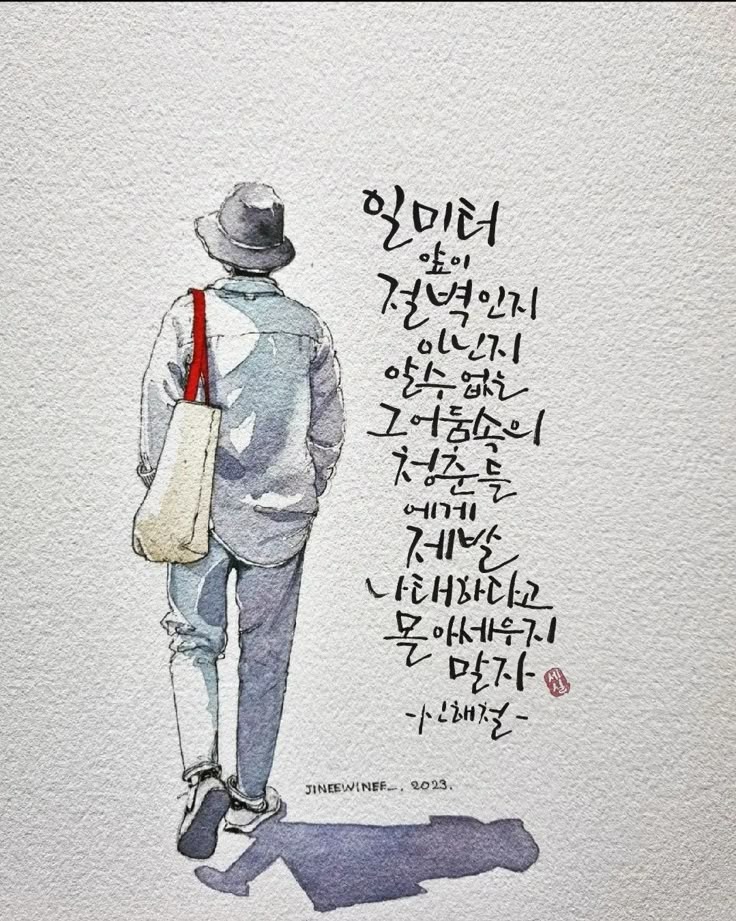 일미터
앞이
절벽인지
아닌지
알수없는
그어둠속의
청춘들
에게
제발
나태하다고
몰아세우지
말자
-신해철-
JINEEWINEE_. 2023.